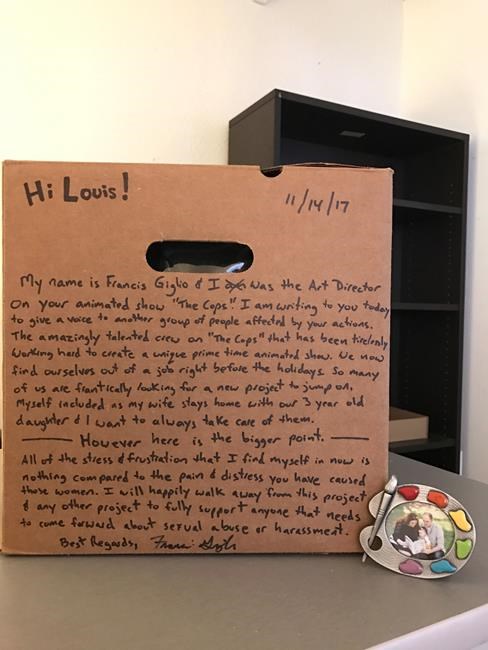 Hi Louis!
11/14/17
My name is Francis Giglio & I was the Art Director
on your animated show "The Cops". I am writing to you today
to give a voice to another group of people affected by your actions.
The amazingly talented crew on "The Cops" that has been tirelessly
working hard to create a unique prime time animated show. We now
find ourselves out of a job right before the holidays. So many
of us are frantically looking for a new project to jump on.
Myself included as my wife stays home with our 3 year old
daughter & I want to always take care of them.
However here is the bigger point.
All of the stress & frustration that I find myself in now is
nothing compared to the pain & distress you have caused
those women. I will happily walk away from this project
& any other project to fully support anyone that needs
to come forward about sexual abuse or harassment.
Best Regards,